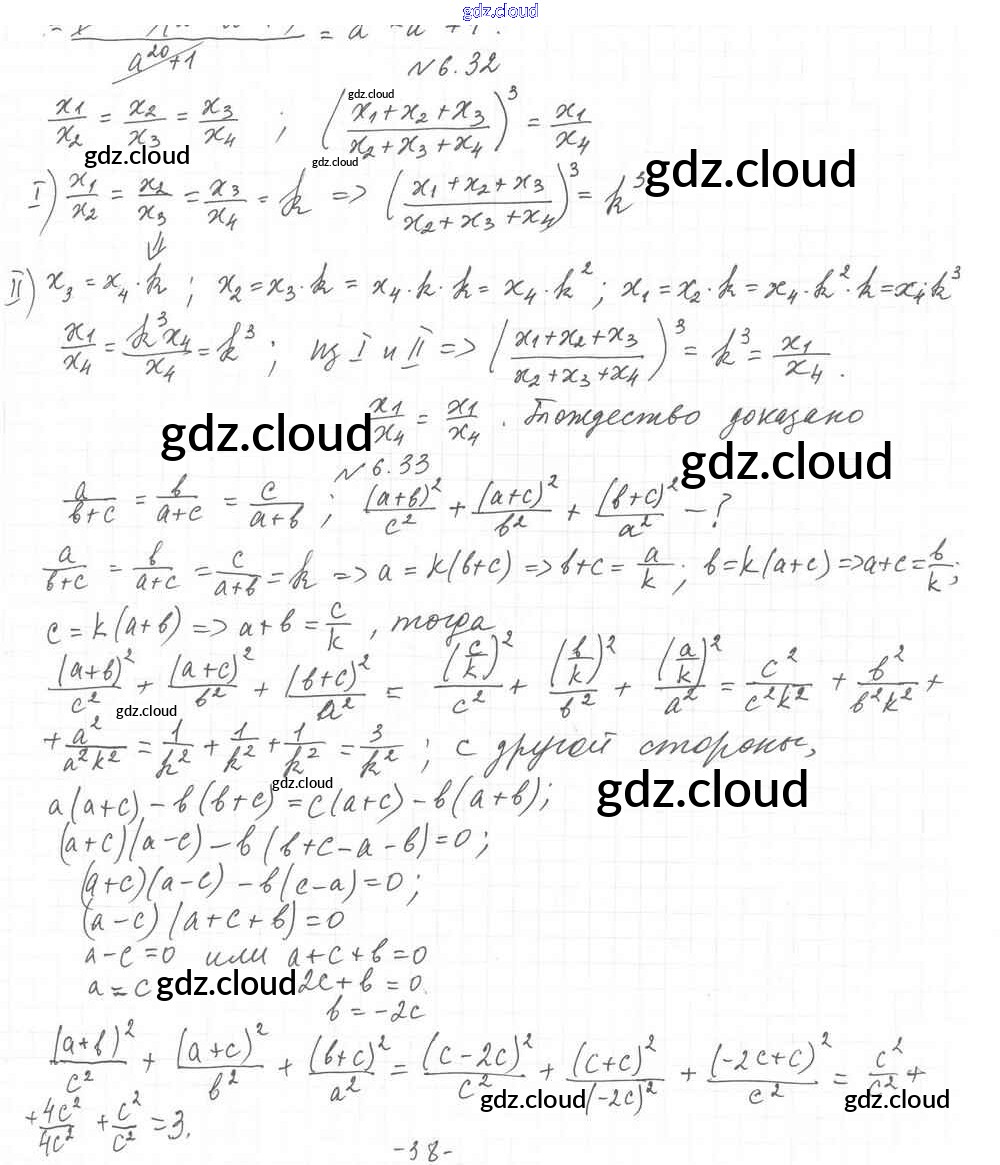 gdz.cloud
a²⁰+1 = a
N 6.32
x₁/x₂ = x₂/x₃ = x₃/x₄ ; ((x₁+x₂+x₃)/(x₂+x₃+x₄))³ = x₁/x₄
gdz.cloud
gdz.cloud
gdz.cloud
gdz.cloud
I) x₁/x₂ = x₂/x₃ = x₃/x₄ = k => ((x₁+x₂+x₃)/(x₂+x₃+x₄))³ = k³
⇓
II) x₃ = x₄·k ; x₂ = x₃·k = x₄·k·k = x₄·k² ; x₁ = x₂·k = x₄·k²·k = x₄·k³
x₁/x₄ = k³x₄/x₄ = k³ ; из I и II => ((x₁+x₂+x₃)/(x₂+x₃+x₄))³ = k³ = x₁/x₄.
x₁/x₄ = x₁/x₄. Тождество доказано
gdz.cloud
gdz.cloud
N 6.33
a/(b+c) = b/(a+c) = c/(a+b) ; (a+b)²/c² + (a+c)²/b² + (b+c)²/a² - ?
a/(b+c) = b/(a+c) = c/(a+b) = k => a = k(b+c) => b+c = a/k ; b = k(a+c) => a+c = b/k ;
c = k(a+b) => a+b = c/k , тогда
(a+b)²/c² + (a+c)²/b² + (b+c)²/a² = (c/k)²/c² + (b/k)²/b² + (a/k)²/a² = c²/c²k² + b²/b²k² +
gdz.cloud
+ a²/a²k² = 1/k² + 1/k² + 1/k² = 3/k² ; с другой стороны,
gdz.cloud
gdz.cloud
a(a+c) - b(b+c) = c(a+c) - b(a+b);
(a+c)(a-c) - b(b+c-a-b) = 0;
(a+c)(a-c) - b(c-a) = 0;
(a-c)(a+c+b) = 0
a-c = 0 или a+c+b = 0
a = c gdz.cloud 2c+b = 0.
b = -2c
(a+b)²/c² + (a+c)²/b² + (b+c)²/a² = (c-2c)²/c² + (c+c)²/(-2c)² + (-2c+c)²/c² = c²/c² +
gdz.cloud
gdz.cloud
+ 4c²/4c² + c²/c² = 3.
-38-